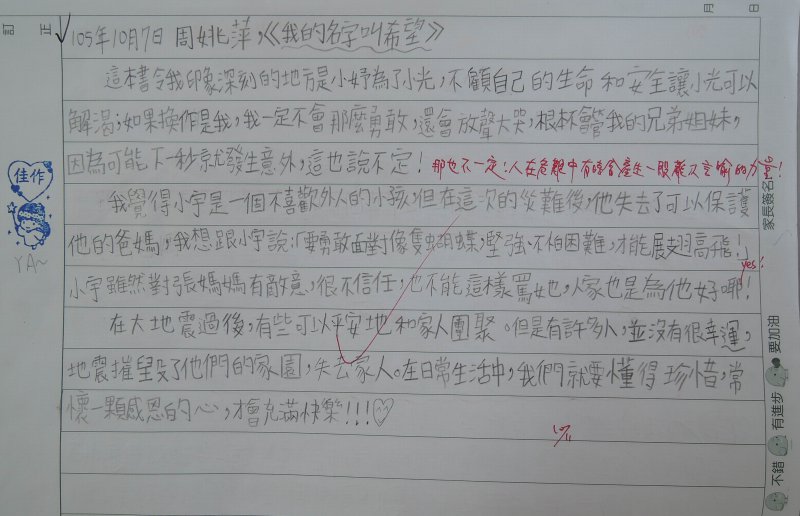 訂 正 月 日
105年10月7日 周姚萍,《我的名字叫希望》
這本書令我印象深刻的地方是小妤為了小光,不顧自己的生命和安全讓小光可以
解渴;如果換作是我,我一定不會那麼勇敢,還會放聲大哭,根本不會管我的兄弟姐妹,
因為可能下一秒就發生意外,這也說不定!
那也不一定:人在危難中有時會產生一股難以言喻的力量!
我覺得小宇是一個不喜歡外人的小孩,但在這次的災難後,他失去了可以保護
他的爸媽,我想跟小宇說:「要勇敢面對像隻蝴蝶,堅強、不怕困難,才能展翅高飛!」
yes!
小宇雖然對張媽媽有敵意,很不信任,也不能這樣罵她,人家也是為他好哪!
在大地震過後,有些可以平安地和家人團聚。但是有許多人,並沒有很幸運,
地震摧毀了他們的家園,失去家人。在日常生活中,我們就要懂得珍惜,常
懷一顆感恩的心,才會充滿快樂!!!
佳作
YA~
家長簽名
不錯 有進步 要加油